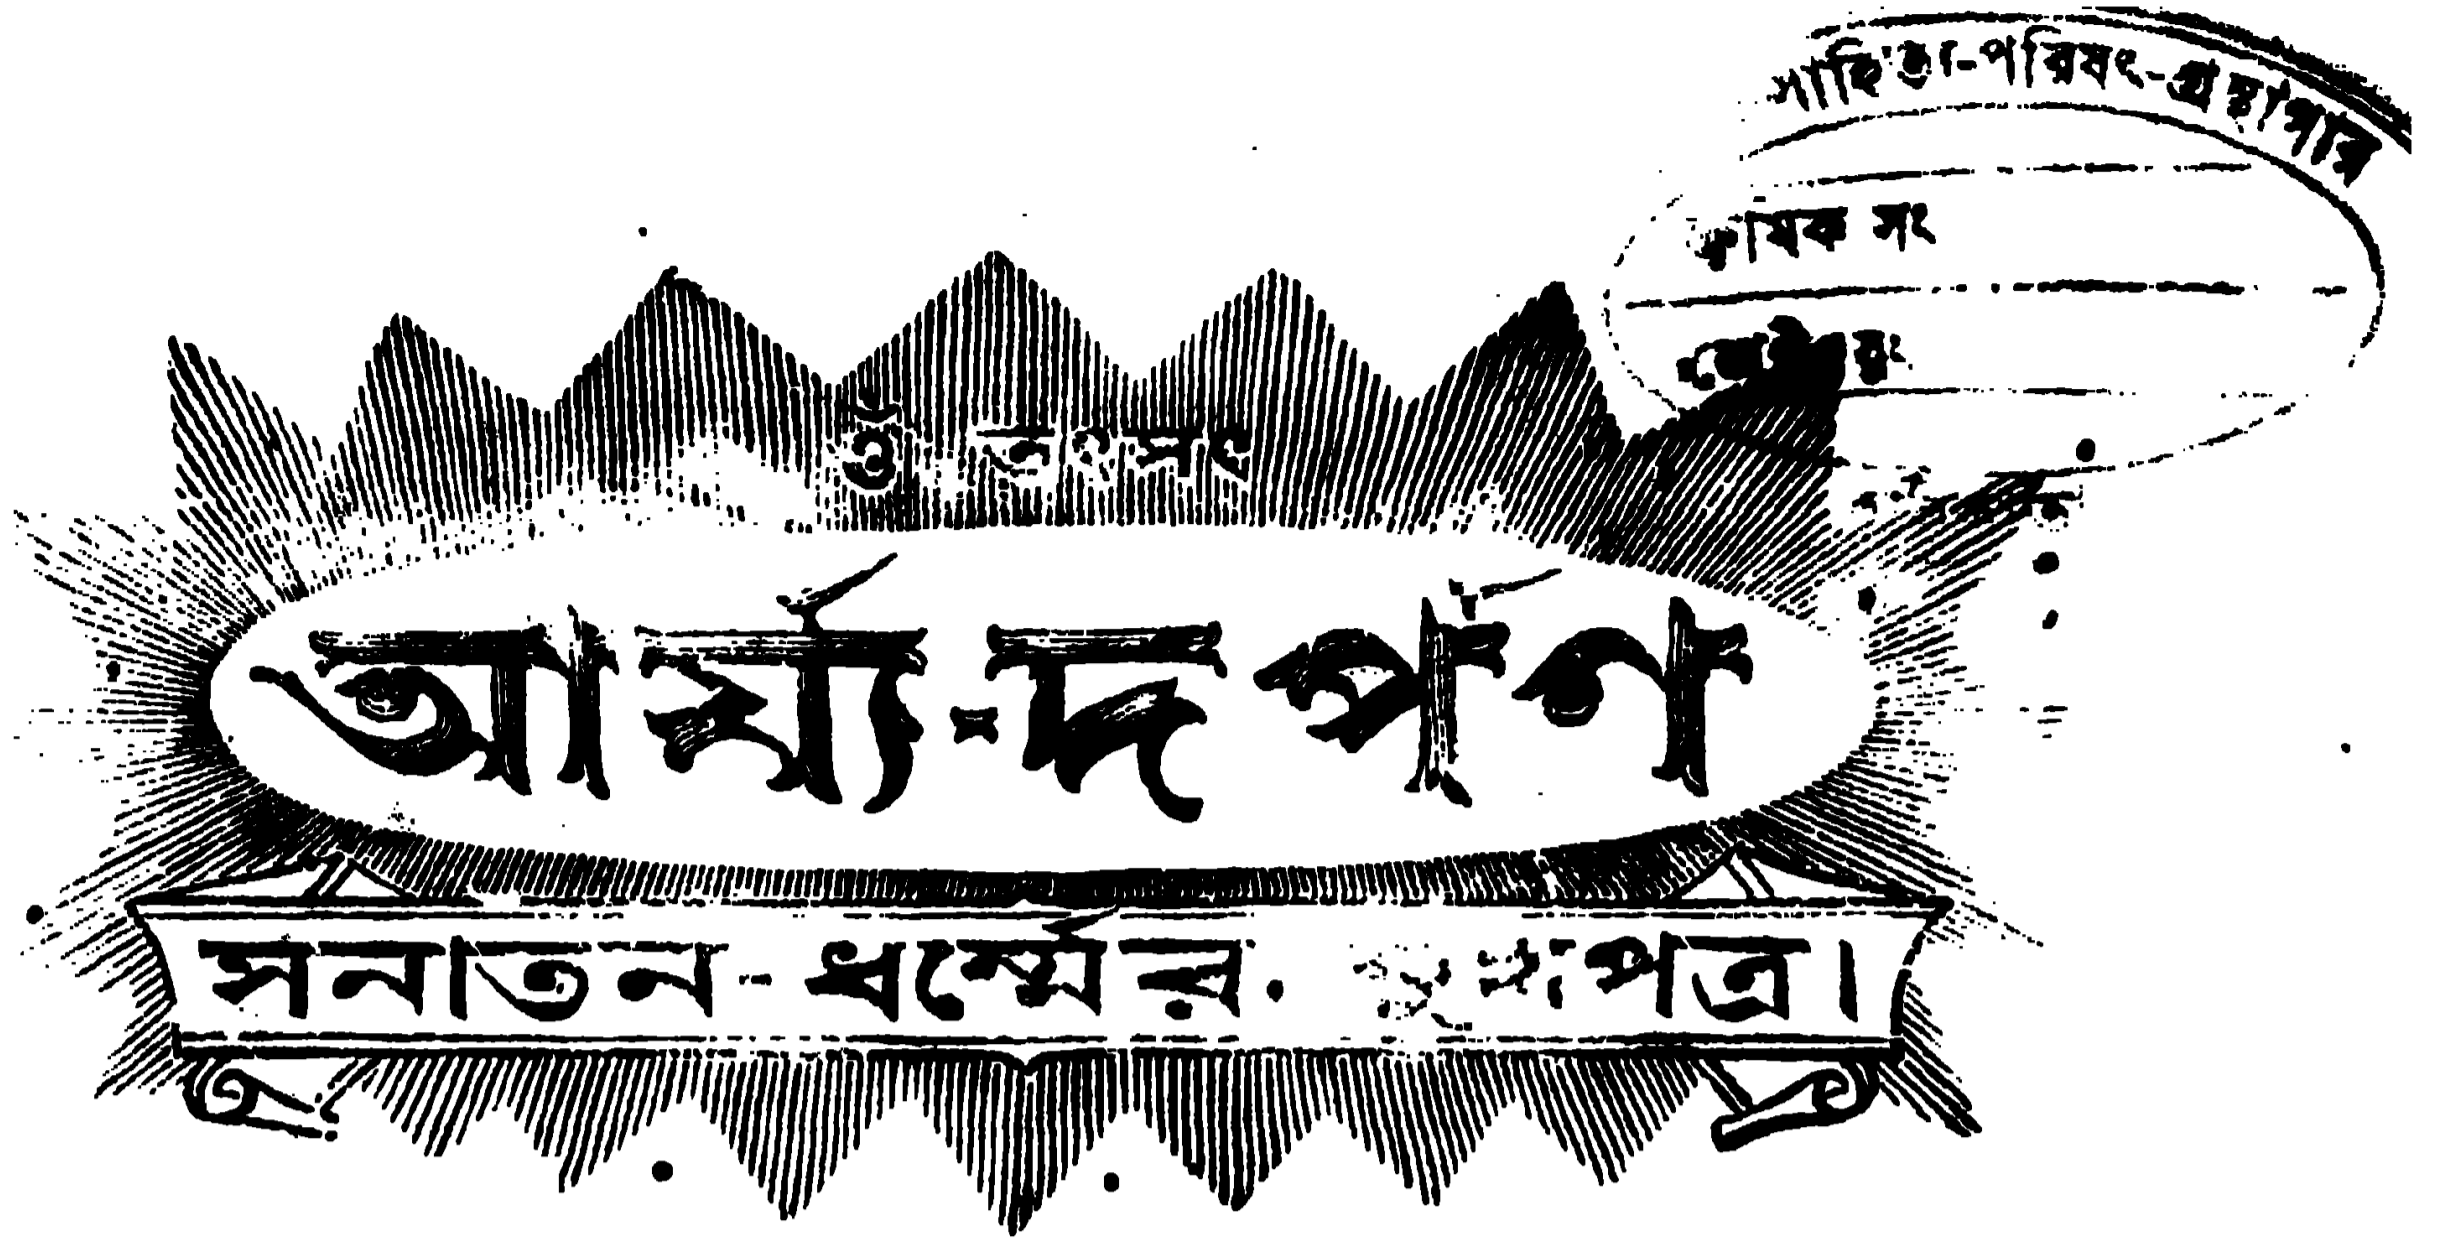 সাহিত্য-পরিষৎ-গ্রন্থাগার
ক্রমিক সং
ওঁ তৎসৎ
আর্য্য-দর্পণ
সনাতন-ধর্ম্মের পত্র।